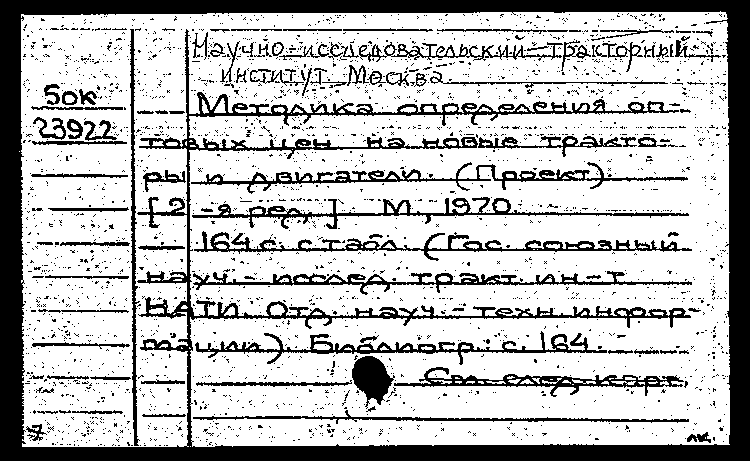 Научно-исследовательский тракторный
институт. Москва.
50к
23922
Методика определения оп-
товых цен на новые тракто-
ры и двигатели. (Проект).
[2-я ред.] М., 1970.
164 с. с табл. (Гос. союзный
науч.-исслед. тракт. ин-т
НАТИ. Отд. науч.-техн. инфор-
мации). Библиогр.: с. 164.
См. след. карт.
7
лк.